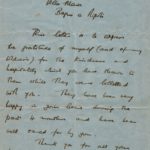 This letter is to express
the gratitude of myself (and of my
officers) for the kindness and
hospitality which you have shown to
them while they were billetted
with you. They have been very
happy in your house during the
past 4 months and have been
well cared for by you.
Thank you for all your